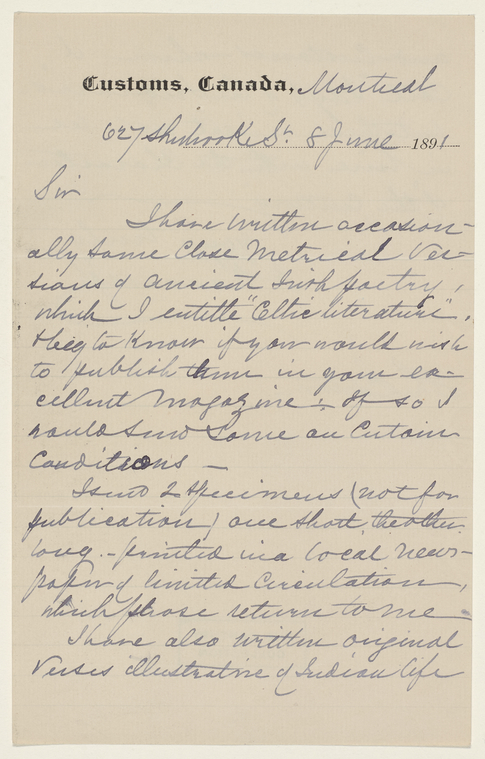 Customs, Canada, Montreal
627 Sherbrooke St. 8 June 1891
Sir
I have written occasion-
ally some close metrical Ver-
sions of ancient Irish poetry,
which I entitle "Celtic literature".
I beg to know if you would wish
to publish them in your ex-
cellent magazine. If so I
would send some on certain
Conditions —
I send 2 specimens (not for
publication) one short, the other
long - printed in a local news-
paper of limited circulation,
which please return to me
I have also written original
Verses illustrative of Indian life